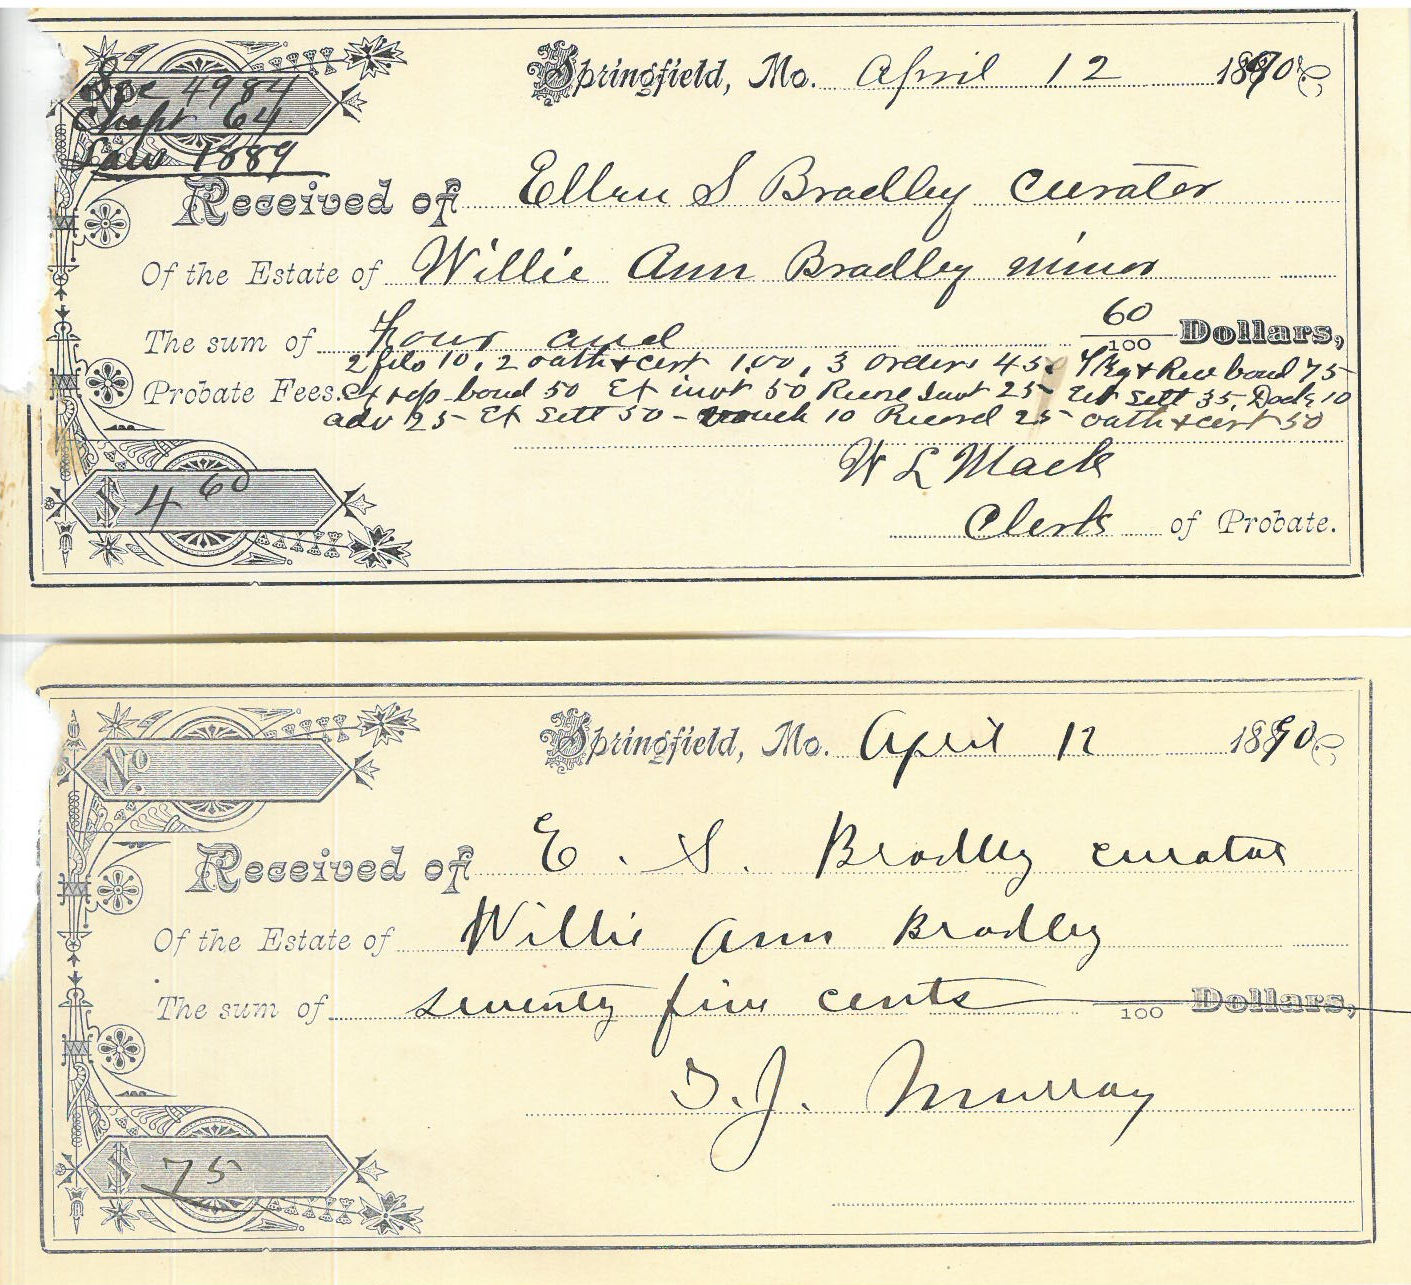 Sec 4984
Chapt 64
Law 1889
Springfield, Mo. April 12 1890
Received of Ellen S Bradley curator
Of the Estate of Willie Ann Bradley minor
The sum of Four and 60/100 Dollars,
2 fils 10, 2 oath & cert 1.00, 3 orders 45, & Rec bond 75
Probate Fees. bond 50 Ex invt 50 25 Ex Sett 35, Dock 10
adv 25 Ex Sett 50 - vouch 10 Record 25 oath & cert 50
W L Mack
Clerk of Probate.
$ 4 60
Springfield, Mo. April 12 1890
No.
Received of E. S. Bradley curator
Of the Estate of Willie Ann Bradley
The sum of seventy five cents /100 Dollars,
T. J. Murray
$ 75